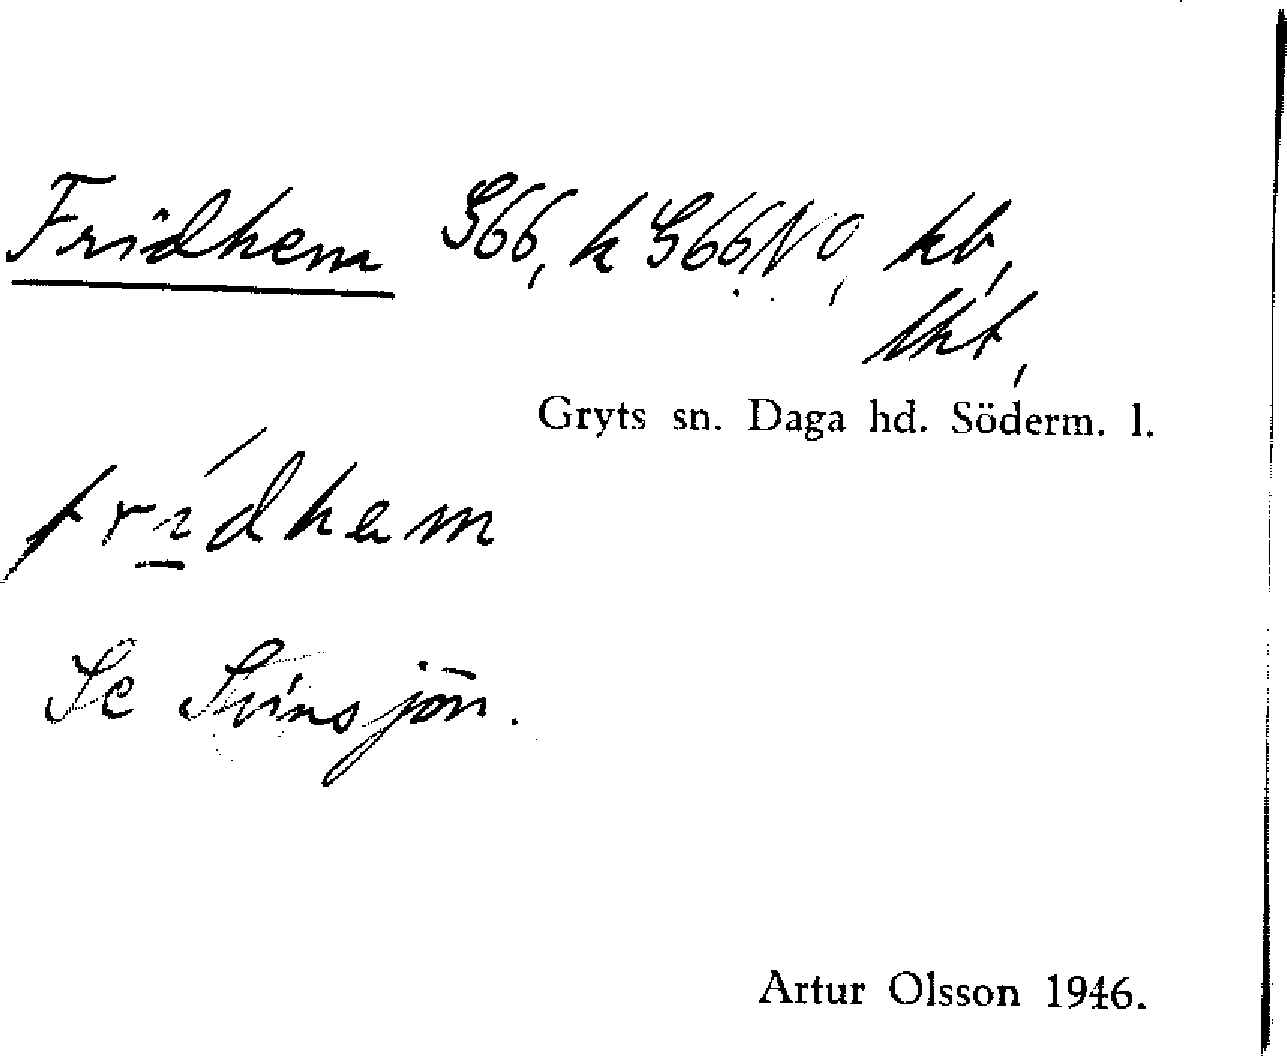 Fridhem G66, k G66NO, kb,
lht,
Gryts sn. Daga hd. Söderm. l.
fridhem
Se Svinsjön.
Artur Olsson 1946.